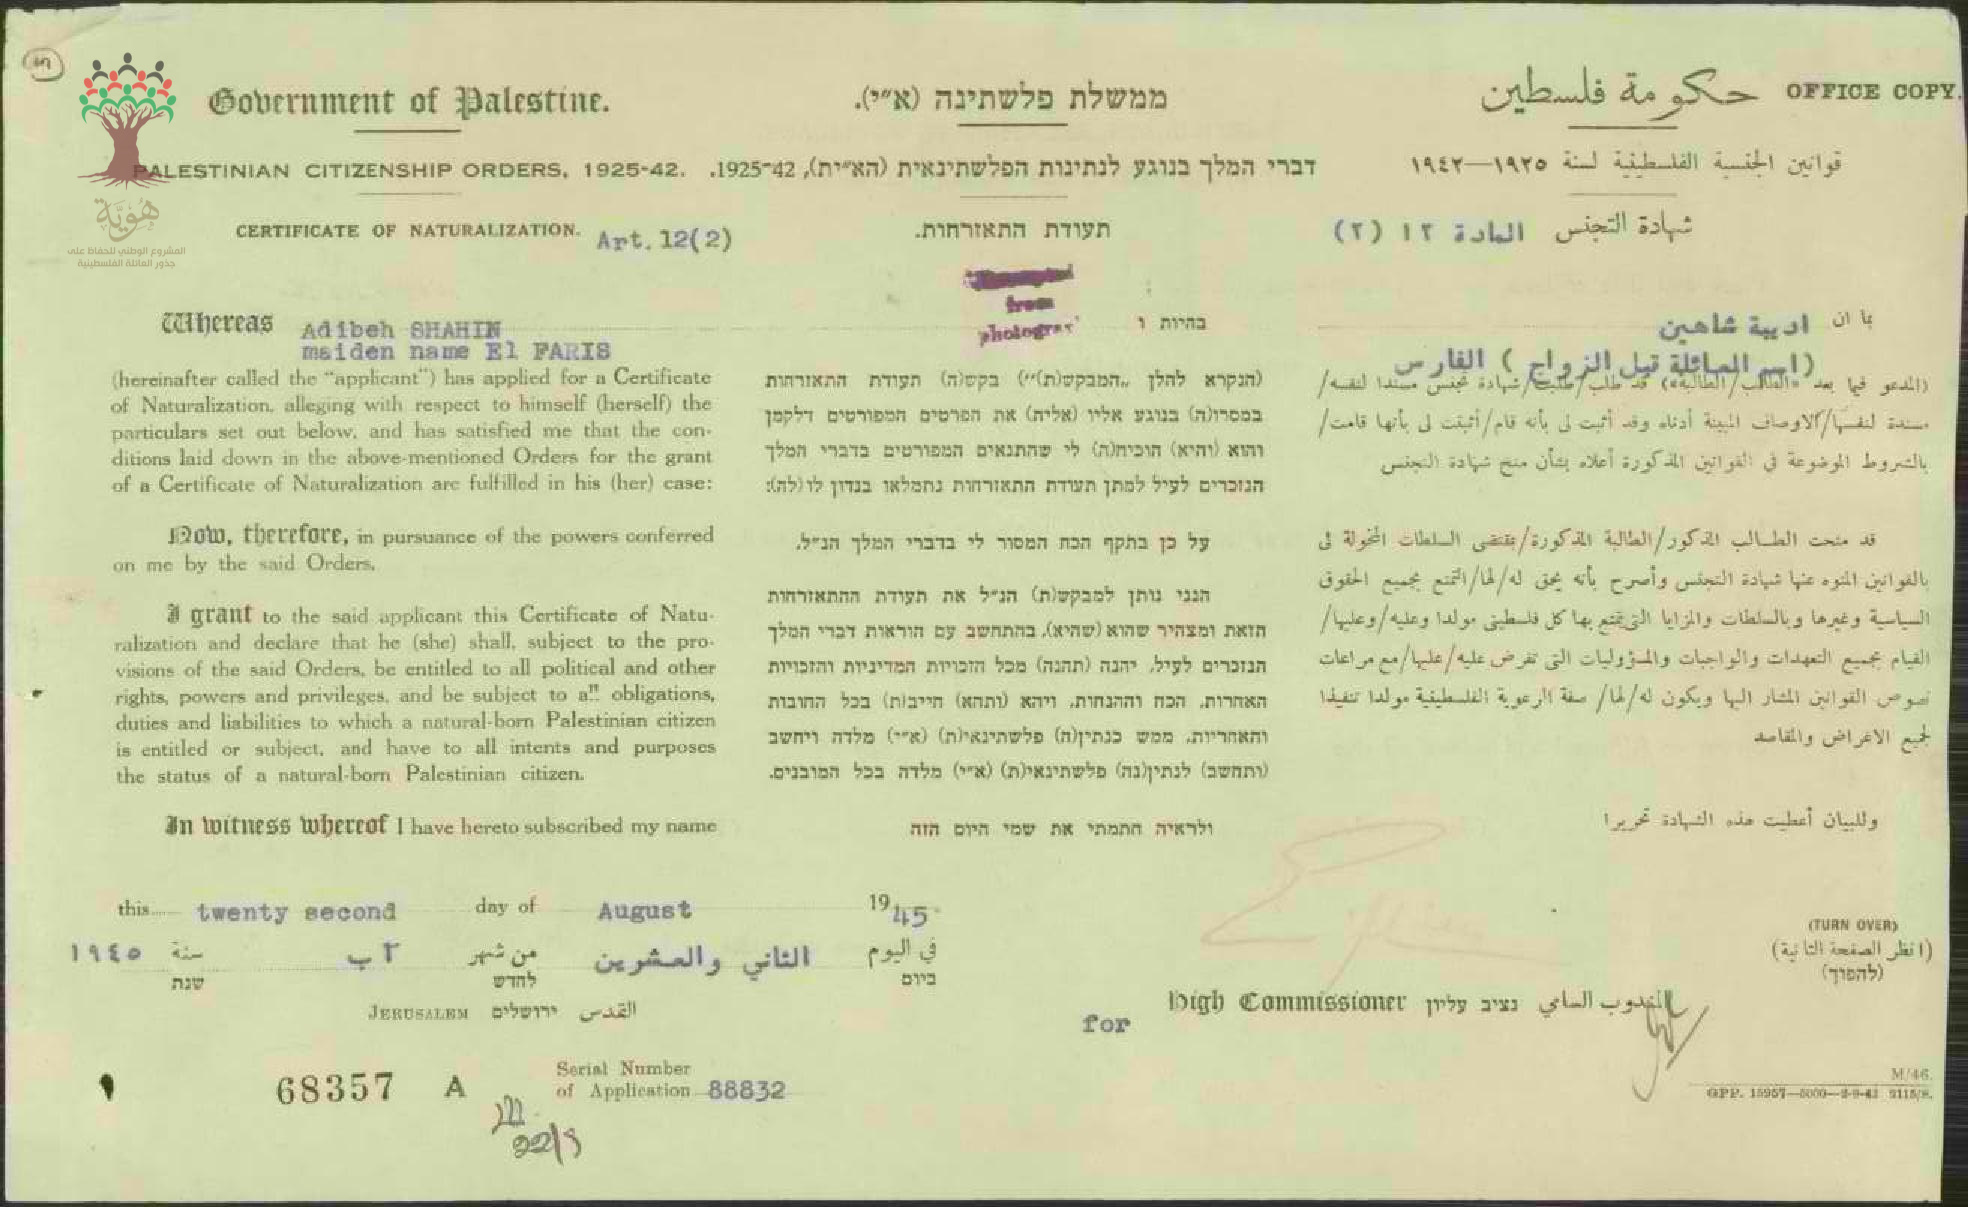 Government of Palestine.
ממשלת פלשתינה (א״י).
حكومة فلسطين
OFFICE COPY.
PALESTINIAN CITIZENSHIP ORDERS, 1925-42.
דברי המלך בנוגע לנתינות הפלשתינאית (הא״ית), 1925-42.
قوانين الجنسية الفلسطينية لسنة ١٩٢٥—١٩٤٢
هُوِيَّة
المشروع الوطني للحفاظ على
جذور العائلة الفلسطينية
CERTIFICATE OF NATURALIZATION. Art. 12(2)
תעודת התאזרחות.
شهادة التجنس المادة ١٢ (٢)
from
Whereas Adibeh SHAHIN
maiden name El FARIS
(hereinafter called the “applicant”) has applied for a Certificate
of Naturalization, alleging with respect to himself (herself) the
particulars set out below, and has satisfied me that the con-
ditions laid down in the above-mentioned Orders for the grant
of a Certificate of Naturalization are fulfilled in his (her) case:
Now, therefore, in pursuance of the powers conferred
on me by the said Orders,
I grant to the said applicant this Certificate of Natu-
ralization and declare that he (she) shall, subject to the pro-
visions of the said Orders, be entitled to all political and other
rights, powers and privileges, and be subject to all obligations,
duties and liabilities to which a natural-born Palestinian citizen
is entitled or subject, and have to all intents and purposes
the status of a natural-born Palestinian citizen.
In witness whereof I have hereto subscribed my name
בהיות ו
(הנקרא להלן „המבקש(ת)״) בקש(ה) תעודת התאזרחות
במסרו(ה) בנוגע אליו (אליה) את הפרטים המפורטים דלקמן
והוא (והיא) הוכיח(ה) לי שהתנאים המפורטים בדברי המלך
הנזכרים לעיל למתן תעודת התאזרחות נתמלאו בנדון לו (לה):
על כן בתקף הכח המסור לי בדברי המלך הנ״ל,
הנני נותן למבקש(ת) הנ״ל את תעודת ההתאזרחות
הזאת ומצהיר שהוא (שהיא), בהתחשב עם הוראות דברי המלך
הנזכרים לעיל, יהנה (תהנה) מכל הזכויות המדיניות והזכויות
האחרות, הכח וההנחות, ויהא (ותהא) חייב(ת) בכל החובות
והאחריות, ממש כנתין(ה) פלשתינאי(ת) (א״י) מלדה ויחשב
(ותחשב) לנתין(נה) פלשתינאי(ת) (א״י) מלדה בכל המובנים.
ולראיה חתמתי את שמי היום הזה
بما ان اديبة شاهين
(اسم العائلة قبل الزواج) الفارس
(المدعو فيما بعد «الطالب/الطالبة») قد طلب/طلبت/شهادة تجنس مسندا لنفسه/
مسندة لنفسها/الاوصاف المبينة أدناه وقد أثبت لى بأنه قام/أثبتت لى بأنها قامت/
بالشروط الموضوعة في القوانين المذكورة أعلاه بشأن منح شهادة التجنس
قد منحت الطالب المذكور/الطالبة المذكورة/بمقتضى السلطات المخولة لى
بالقوانين المنوه عنها شهادة التجنس وأصرح بأنه يحق له/لها/التمتع بجميع الحقوق
السياسية وغيرها وبالسلطات والمزايا التي يتمتع بها كل فلسطينى مولدا وعليه/وعليها/
القيام بجميع التعهدات والواجبات والمسؤوليات التى تفرض عليه/عليها/مع مراعات
نصوص القوانين المشار اليها ويكون له/لها/ صفة الرعوية الفلسطينية مولدا تنفيذا
لجميع الاغراض والمقاصد
وللبيان أعطيت هذه الشهادة تحريرا
this twenty second day of August 1945
في اليوم الثاني والعشرين من شهر آب سنة ١٩٤٥
ביום לחדש שנת
JERUSALEM ירושלים القدس
(TURN OVER)
(انظر الصفحة الثانية)
(להפוך)
for High Commissioner נציב עליון المندوب السامي
68357 A
Serial Number
of Application 88832
22/8
M/46.
GPP. 15957—5000—2-9-42 2115/S.